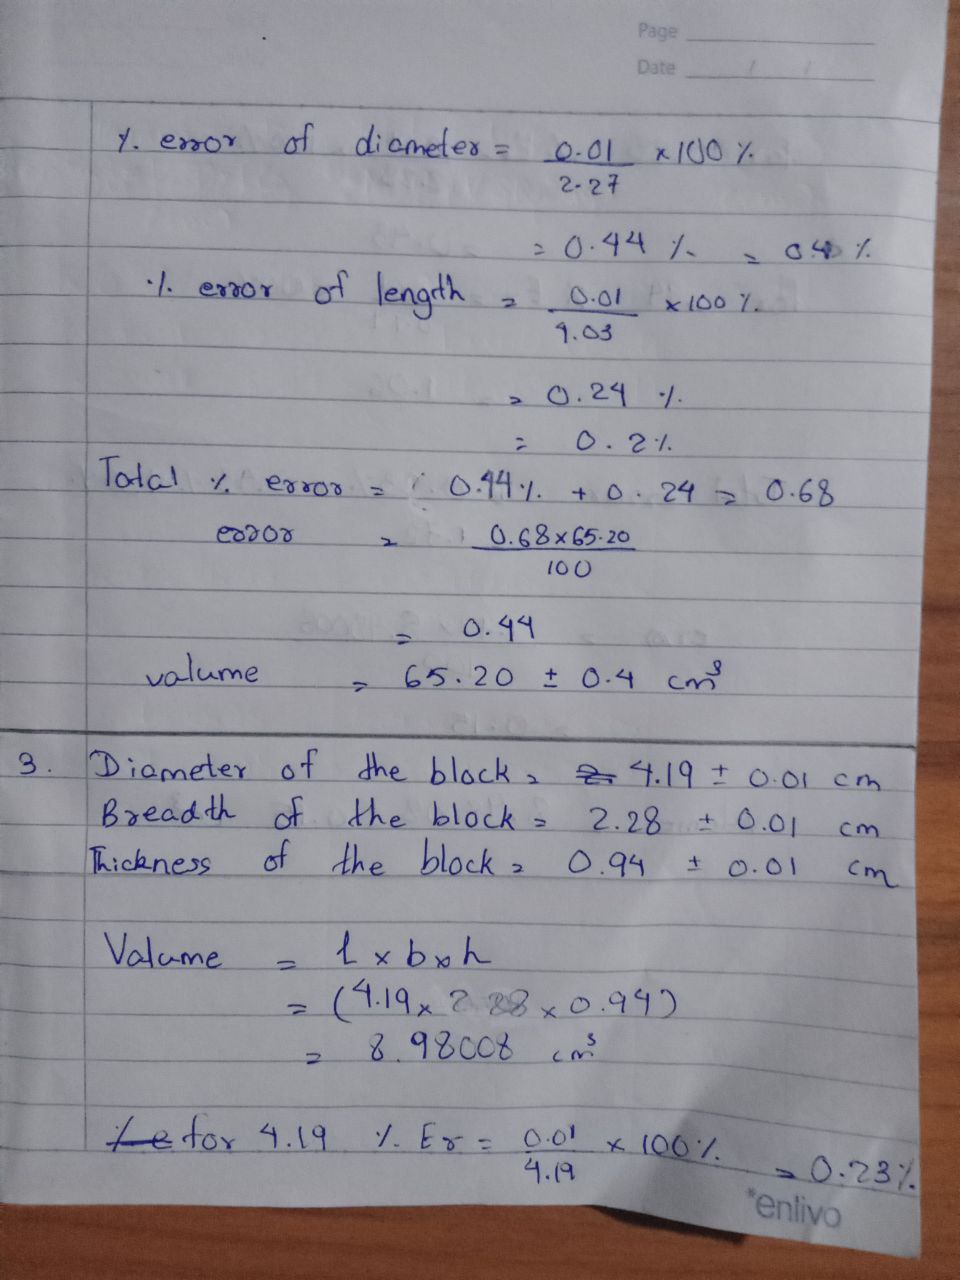 Page
Date / /
% error of diameter = 0.01 x 100 %
2.27
= 0.44 % = 0.4 %
% error of length = 0.01 x 100 %
4.03
= 0.24 %
= 0.2 %
Total % error = 0.44 % + 0.24 = 0.68
error = 0.68 x 65.20
100
= 0.44
volume = 65.20 ± 0.4 cm³
3. Diameter of the block = 4.19 ± 0.01 cm
Breadth of the block = 2.28 ± 0.01 cm
Thickness of the block = 0.94 ± 0.01 cm
Valume = l x b x h
= (4.19 x 2.28 x 0.94)
= 8.98008 cm³
for 4.19 % Er = 0.01 x 100 % = 0.23 %
4.19
*enlivo